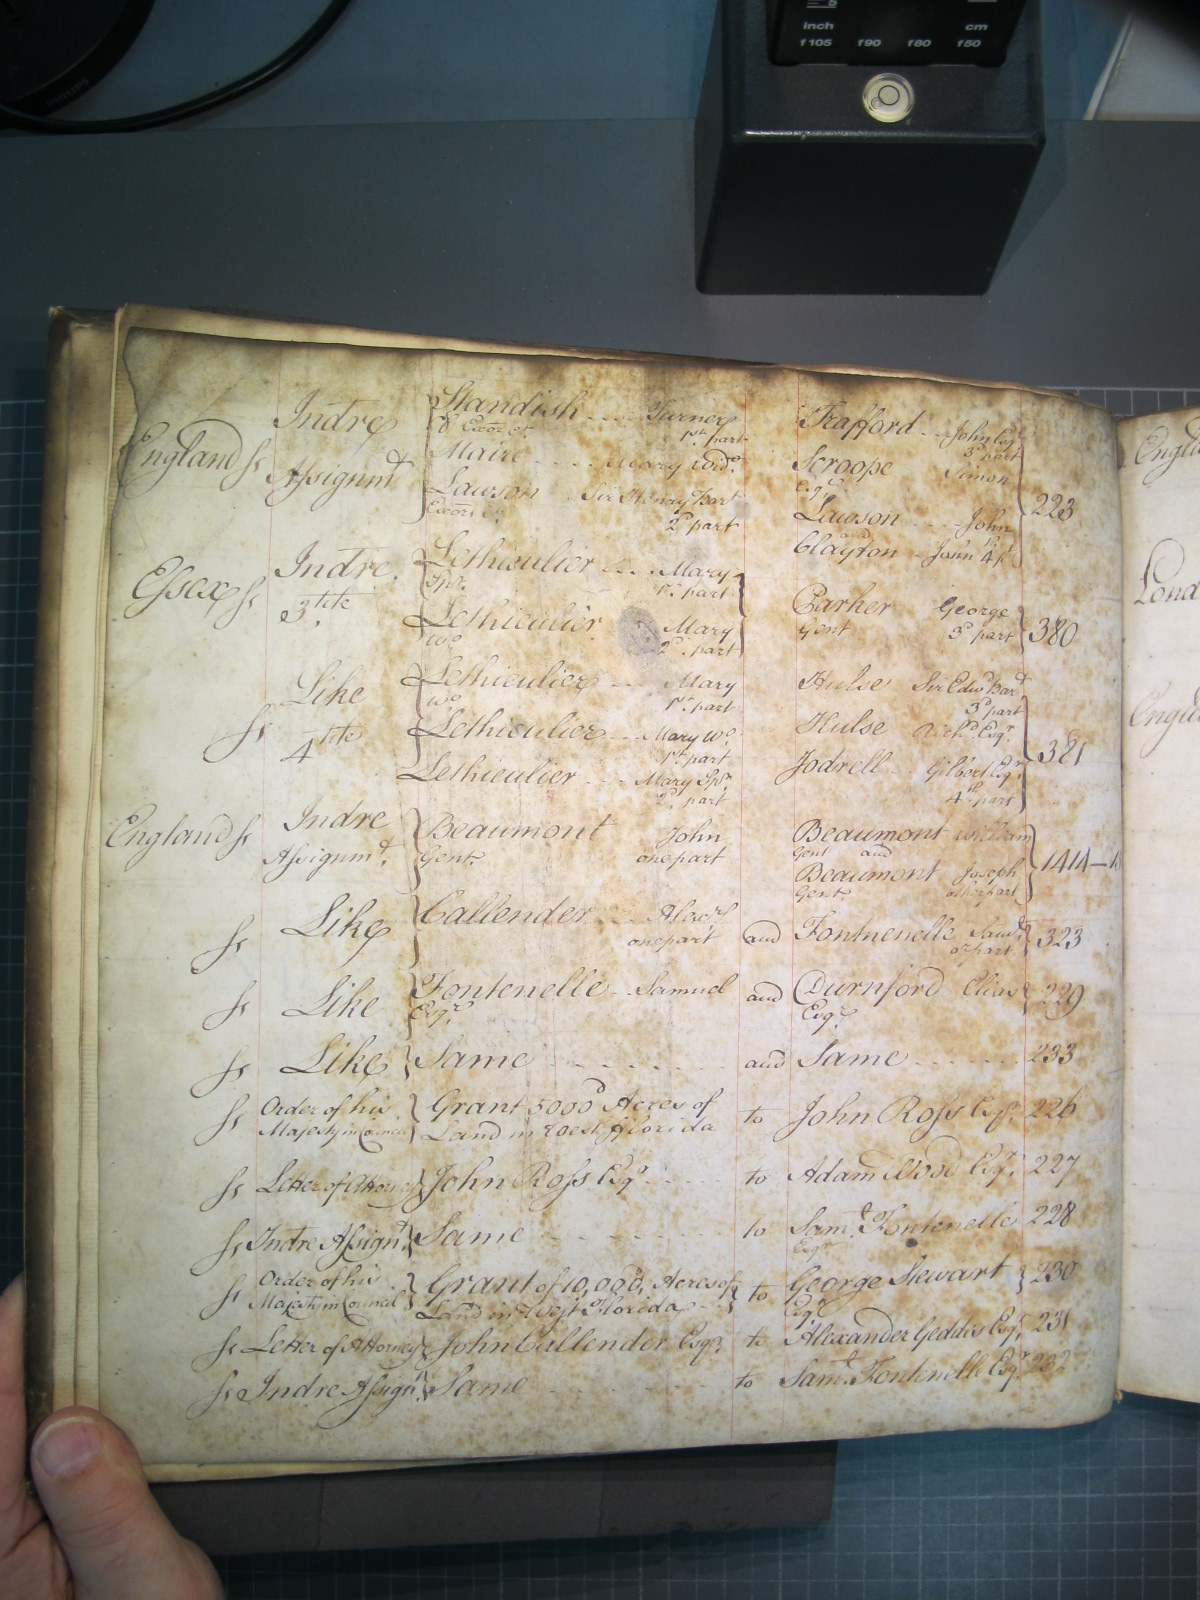 inch cm
f105 f90 f80 f50
PHILIPS
England ss Indre Assignmt Standish ---- Turner
& Exors et 1st part
Trafford -- John Esqr
3d part
Maire ---- Mary Wido.
Scroope Simon
Esqr.
Lawson Sir Henry Bart
2d part
Lawson ---- John
and
Clayton - John 4 pt
223
Essex ss Indre 3tite. Lethieulier -- Mary
Spr. 1st. part
Lethieulier Mary
Wo. 2d. part
Parker George
Gent 3d part
380
ss Like 4tite Lethieulier -- Mary
Wo. 1st. part
Hulse Sir Edwd Bart
3d part
Lethieulier -- Mary Wo.
1st part
Hulse Richd Esqr
Lethieulier --- Mary Spr.
2d. part
Jodrell -- Gilbert Esqr.
4th part
381
England ss Indre Assignmt. Beaumont John
Gent. one part
Beaumont William
Gent and
Beaumont Joseph
Gent. other part
1414-1
ss Like Callender Alexr
one part
and Fontnenelle Saml.
or part
323
ss Like Fontenelle -- Samuel
Esqr.
and Durnford Elias
Esqr.
229
ss Like Same -------- and Same ------ 233
ss Order of his Grant 5000d Acres of
Majesty in Council Land in West Florida to John Ross Esqr. 226
ss Letter of Attorney John Ross Esqr. ---- to Adam Wood Esqr. 227
ss Indre Assignt. Same ------- to Saml. Fontenelle 228
Esqr
ss Order of his Grant of 10,000, Acres of
Majesty in Council Land in West Florida -- to George Stewart
Esqr
230
ss Letter of Attorney John Callender Esqr. to Alexander Geddis Esqr. 231
ss Indre Assignt. Same -------- to Saml. Fontenelle Esqr 232
Engla
Lond
Engla